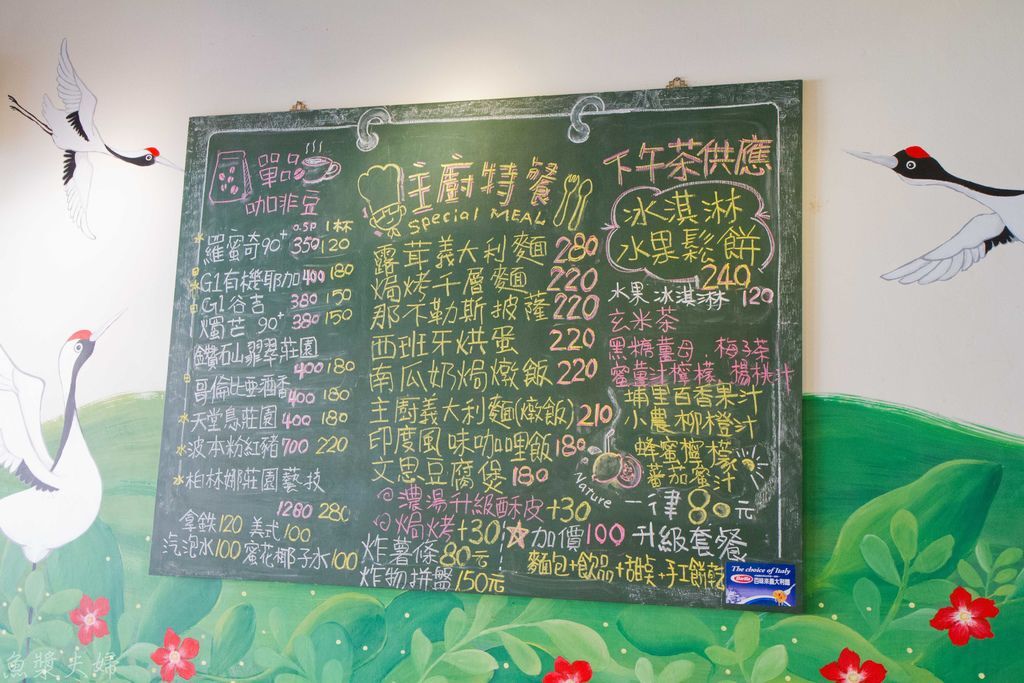 單品
咖啡豆
0.5P 1杯
羅蜜奇90⁺ 350 120
G1有機耶加 400 180
G1谷吉 380 150
燭芒 90⁺ 380 150
鑽石山翡翠莊園
400 180
哥倫比亞酒香
400 180
天堂鳥莊園 400 180
波本粉紅豬 700 220
柏林娜莊園藝技
1280 280
拿鐵120 美式100
汽泡水100 蜜花椰子水100
主廚特餐
special MEAL
露茸義大利麵 280
焗烤千層麵 220
那不勒斯披薩 220
西班牙烘蛋 220
南瓜奶焗燉飯 220
主廚義大利麵(燉飯) 210
印度風味咖哩飯 180
文思豆腐煲 180
@濃湯升級酥皮+30
@焗烤+30
炸薯條80元
炸物拼盤150元
下午茶供應
冰淇淋
水果鬆餅
240
水果冰淇淋 120
玄米茶
黑糖薑母 梅子茶
蜜薑汁檸檬 楊桃汁
埔里百香果汁
小農柳橙汁
蜂蜜檸檬
蕃茄蜜汁
Nature
一律80元
☆加價100升級套餐
麵包+飲品+甜點+手工餅乾
The choice of Italy
Barilla
百味來義大利麵
魚漿夫婦